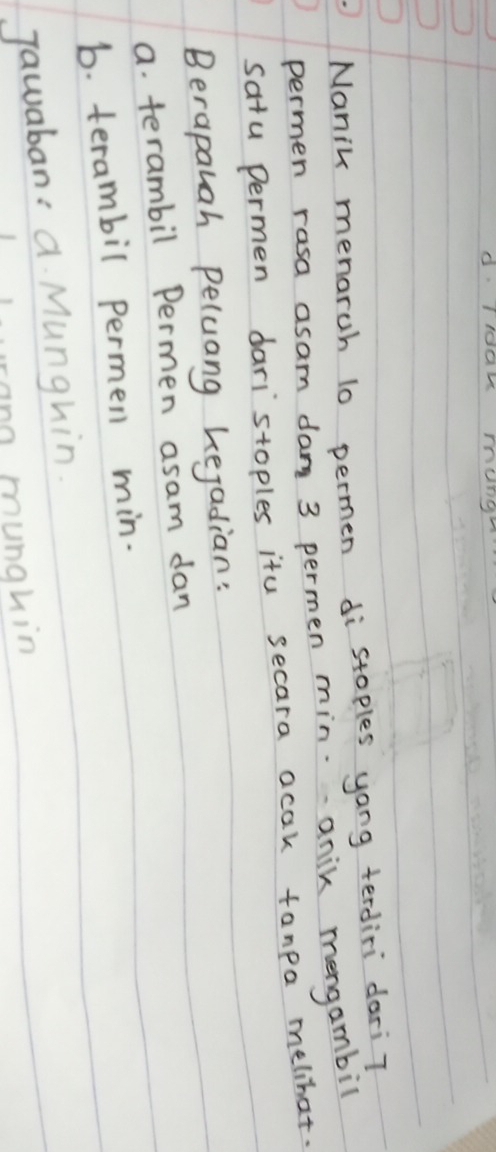 d. Tidak
Nanik menaruh 10 permen di stoples yang terdiri dari 7
permen rasa asam dan 3 permen min. anik mengambil
satu permen dari stoples itu secara acak tanpa melihat.
Berapakah peluang kejadian:
a. terambil permen asam dan
b. terambil permen min.
Jawaban: a. Mungkin.
mungkin